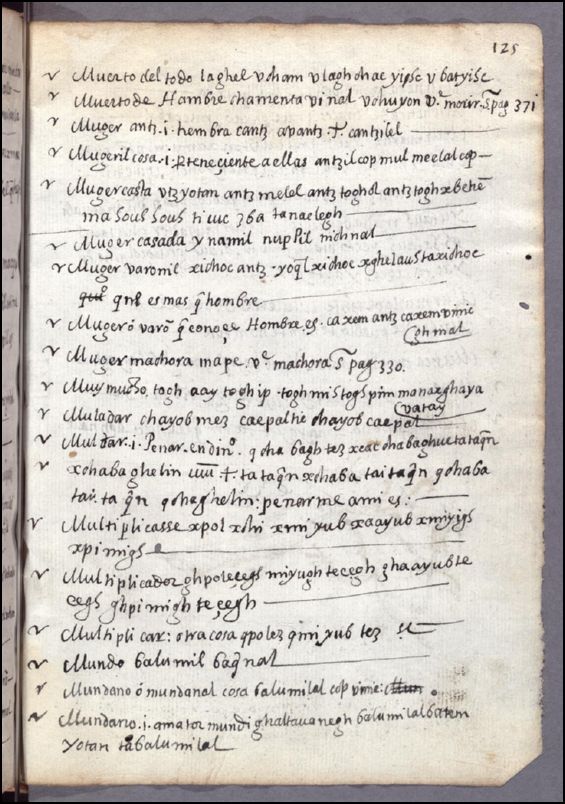 125
Muerto del todo laghel vcham vlaghohae yipsc vbatyisc
Muerto de Hambre chamenta vinal vchuyon vᵉ morir. pag 371
Muger antz .i. hembra cantz avantz ꝉ. cantzilel
Mugeril cosa .i. perteneçiente a ellas antzil cop mul meelal cop
Muger casta vtz yotan antz melel antz toghol antz togh xbehē
ma sous sous ti uc z6a tanaelegh
Muger casada ynamil nupil nichnal
Muger varonil xichoc antz yoql xichoc xghelaus taxichoc
qnē es mas q̄ hombre
Muger ó varō q̄ conoçe Hombre es. caxem antz caxem vinic
ghnial
Muger machora mape vᵉ machora pag 330.
Muy mucho togh aay toghip togh mis togs pim monaxghaya
vatay
Muladar chayob mez caepaltic chayob caepal
Multar .i. Penar en dinº. qcha bagh tez xcac chabaghuc tataqn
xchabaghelin ꝉ. tataq̄n xchaba tai taq̄n qchaba
tai. ta q̄n qchaghelin: penarme a mi es:
Multiplicasse xpol xchi xmi yub xaayub xmiyigs
xpimigs
Multiplicador ghpoleçegs miyugh teçegh ghaayubte
çegs ghpimigh teçegh
Multiplicar: otra cosa qpolez qmi yub tez
Mundo balumil baq̄nal
Mundano ó mundanal cosa balumilal cop vinic:
Mundario .i. amator mundi ghaltavanegh balumilal batem
yotan tabalumilal